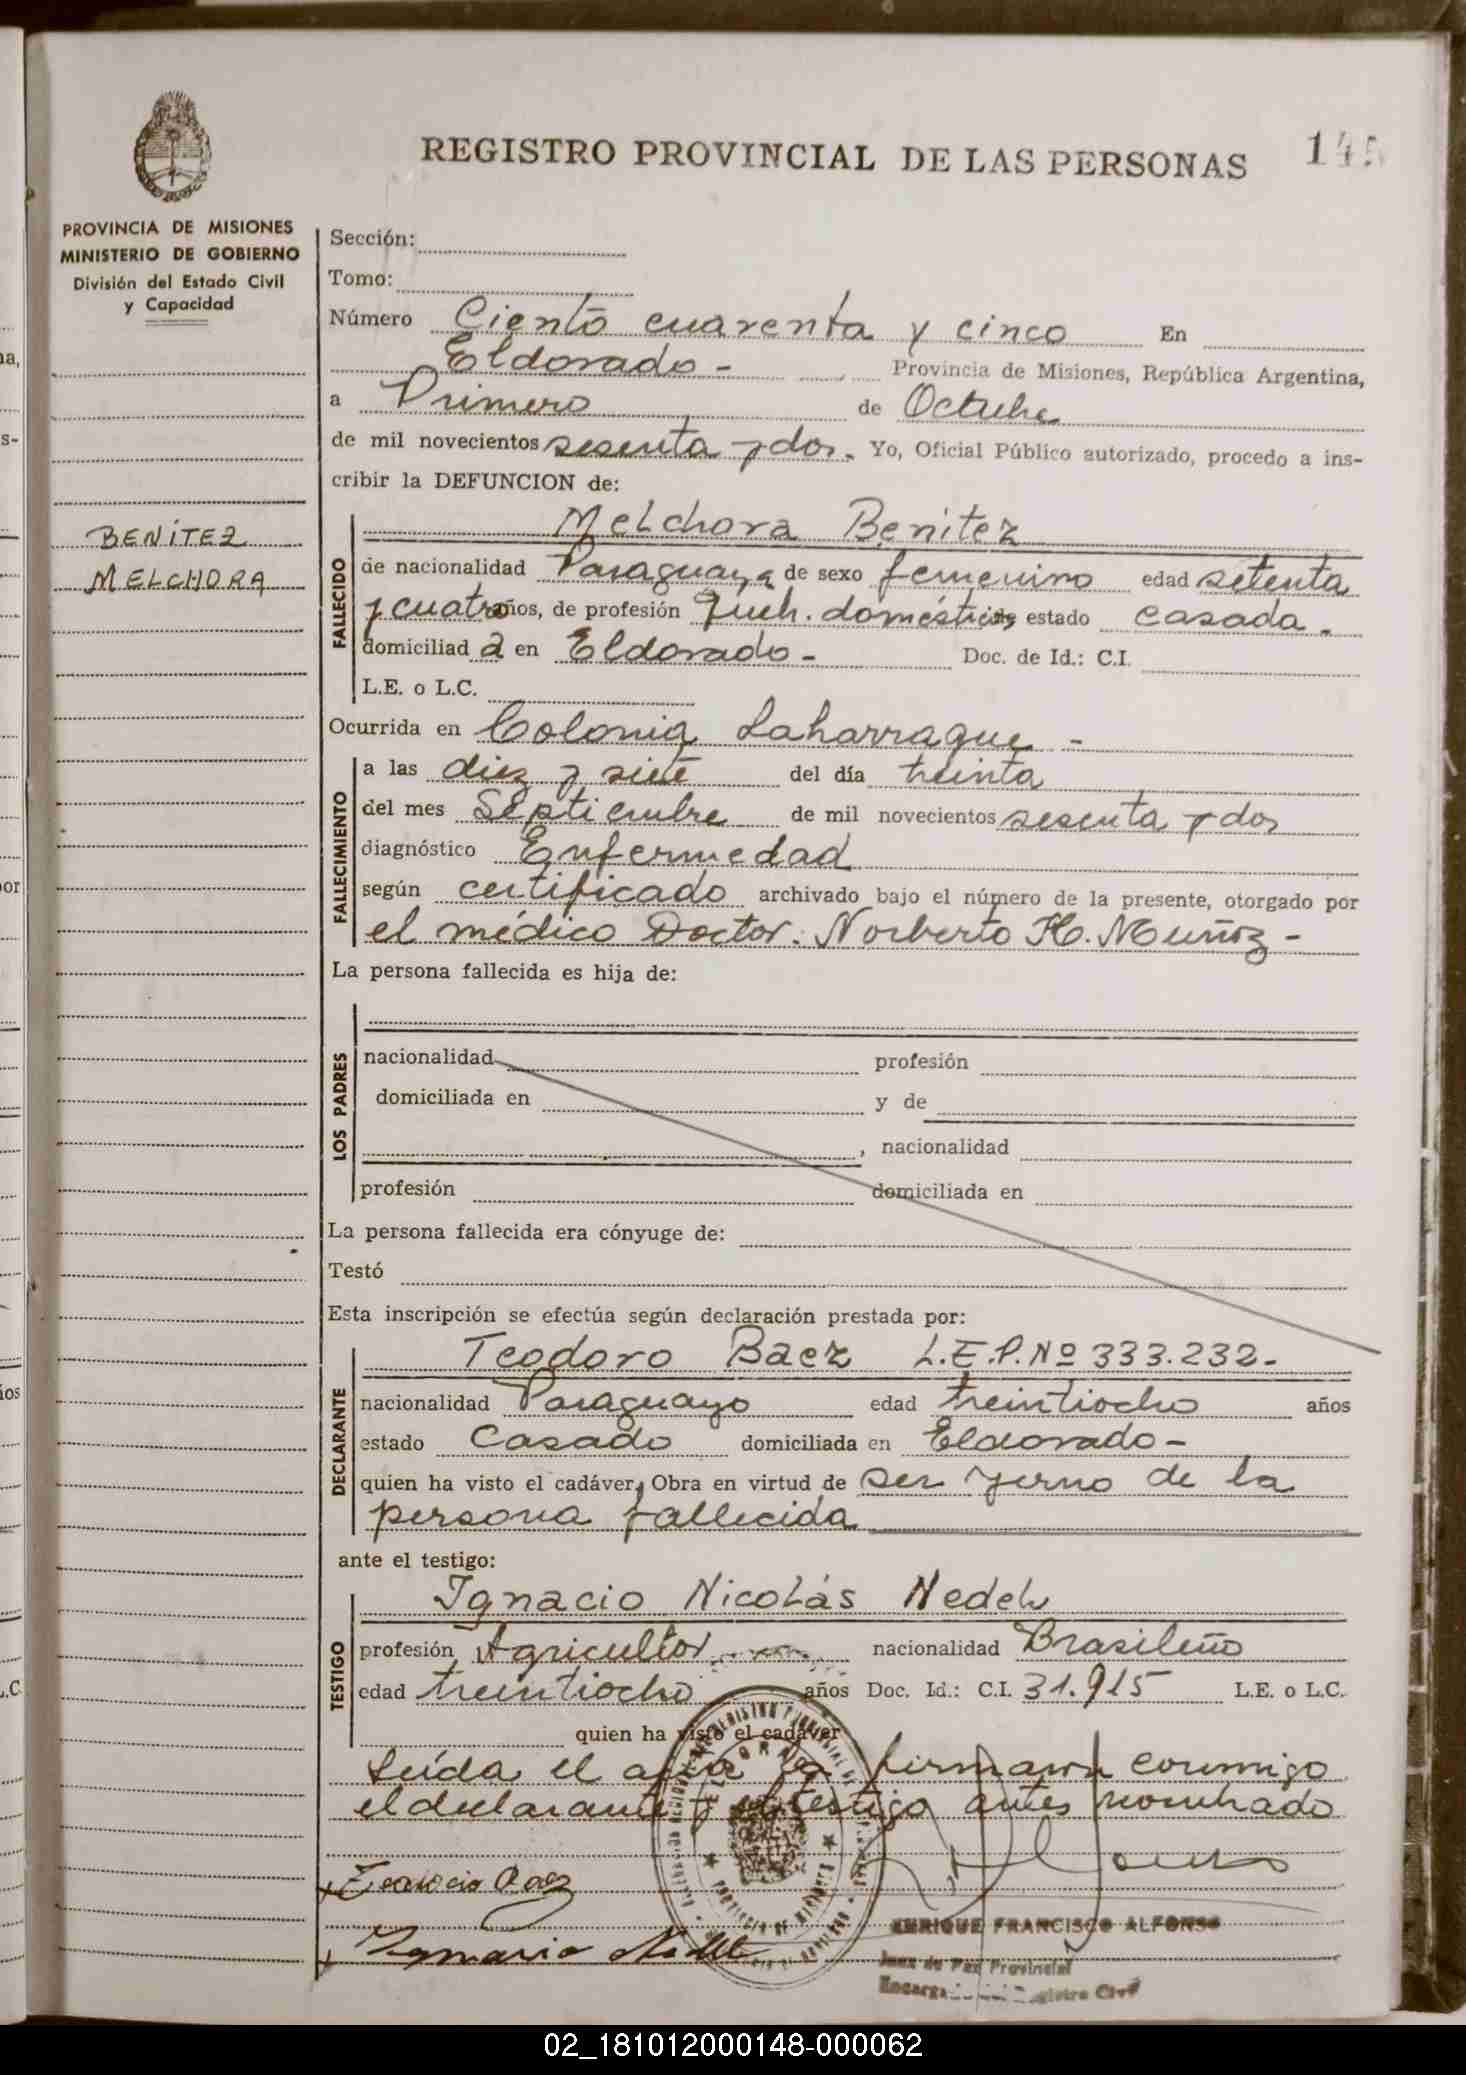 REGISTRO PROVINCIAL DE LAS PERSONAS
PROVINCIA DE MISIONES
MINISTERIO DE GOBIERNO
División del Estado Civil
y Capacidad
BENíTEZ
MELCHORA
Sección:
Tomo:
Número Ciento cuarenta y cinco En
Eldorado - Provincia de Misiones, República Argentina,
a Primero de Octubre
de mil novecientos sesenta y dos. Yo, Oficial Público autorizado, procedo a ins-
cribir la DEFUNCION de:
FALLECIDO
Melchora Benitez
de nacionalidad Paraguaya de sexo femenino edad setenta
y cuatro años, de profesión Queh. domésticos de estado casada.
domiciliad a en Eldorado - Doc. de Id.: C.I.
L.E. o L.C.
Ocurrida en Colonia Laharrague -
FALLECIMIENTO
a las diez y siete del día treinta
del mes Septiembre de mil novecientos sesenta y dos
diagnóstico Enfermedad
según certificado archivado bajo el número de la presente, otorgado por
el médico Doctor. Norberto H. Muñoz -
La persona fallecida es hija de:
LOS PADRES
nacionalidad profesión
domiciliada en y de
, nacionalidad
profesión domiciliada en
La persona fallecida era cónyuge de:
Testó
Esta inscripción se efectúa según declaración prestada por:
DECLARANTE
Teodoro Baez L.E.P. Nº 333.232.-
nacionalidad Paraguayo edad treintiocho años
estado Casado domiciliada en Eldorado -
quien ha visto el cadáver, Obra en virtud de ser yerno de la
persona fallecida
ante el testigo:
TESTIGO
Ignacio Nicolás Nedel
profesión Agricultor nacionalidad Brasileño
edad treintiocho años Doc. Id.: C.I. 31.915 L.E. o L.C.
quien ha visto el cadáver
Leída el acta la firmaron conmigo
el declarante y el testigo antes nombrado
ENRIQUE FRANCISCO ALFONSO
Juez de Paz Provincial
02_181012000148-000062